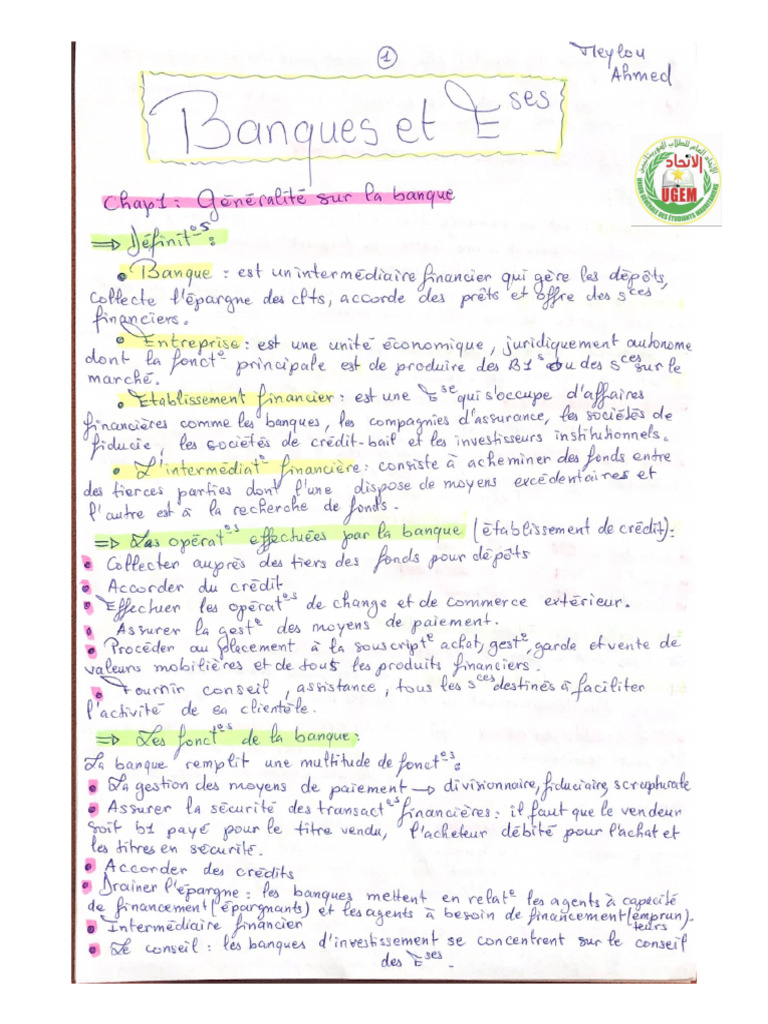 ①
Meylou
Ahmed
Banques et Eses
الاتحاد العام للطلاب الموريتانيين
الاتحاد
UGEM
UNION GENERALE DES ETUDIANTS MAURITANIENS
Chap1: Généralité sur la banque
⇒ Définitºs :
• Banque : est un intermédiaire financier qui gère les dépôts,
collecte l'épargne des clts, accorde des prêts et offre des sces
financiers.
• Entreprise : est une unité économique, juridiquement autonome
dont la fonctº principale est de produire des B1s ou des sces sur le
marché.
• Etablissement financier : est une Ese qui s'occupe d'affaires
financières comme les banques, les compagnies d'assurance, les sociétés de
fiducie, les sociétés de crédit-bail et les investisseurs institutionnels.
• L'intermédiatº financière : consiste à acheminer des fonds entre
des tierces parties dont l'une dispose de moyens excédentaires et
l'autre est à la recherche de fonds.
⇒ Les opératºs effectuées par la banque (établissement de crédit):
• Collecter auprès des tiers des fonds pour dépôts
• Accorder du crédit
• Effectuer les opératºs de change et de commerce extérieur.
• Assurer la gestº des moyens de paiement.
• Procéder au placement à la souscriptº achat, gestº, garde et vente de
valeurs mobilières et de tous les produits financiers.
• Fournir conseil, assistance, tous les sces destinés à faciliter
l'activité de sa clientèle.
⇒ Les fonctºs de la banque :
La banque remplit une multitude de fonctºs :
• La gestion des moyens de paiement → divisionnaire, fiduciaire, scrupturale
• Assurer la sécurité des transactºs financières : il faut que le vendeur
soit b1 payé pour le titre vendu, l'acheteur débité pour l'achat et
les titres en sécurité.
• Accorder des crédits
• Drainer l'épargne : les banques mettent en relatº les agents à capacité
de financement (épargnants) et les agents à besoin de financement (emprunteurs).
• Intermédiaire financier
• Le conseil : les banques d'investissement se concentrent sur le conseil
des Eses.